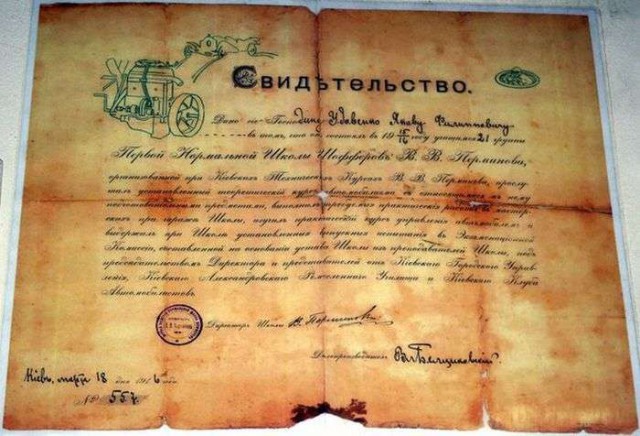 Свидѣтельство.
Дано сіе Господину Удовенко Якову Филипповичу
въ томъ, что онъ состоялъ въ 19 15/16 году учащимся 21 группы
Первой Нормальной Школы Шофферовъ В. В. Перминова,
организованной при Кіевскихъ Техническихъ Курсахъ В. В. Перминова, прослу-
шалъ установленный теоретическій курсъ автомобилизма со относящимися къ нему
предметами, выполнилъ практическія работы въ мастер-
скихъ при гаражѣ Школы, изучилъ практическій курсъ управленія автомобилемъ и
выдержалъ при Школѣ установленныя выпускныя испытанія въ Экзаменаціонной
Комиссіи, составленной на основаніи устава Школы изъ преподавателей Школы, подъ
предсѣдательствомъ Директора и представителей отъ Кіевскаго Городского Управ-
ленія, Кіевскаго Александровскаго Ремесленнаго Училища и Кіевскаго Клуба
Автомобилистовъ.
Директоръ Школы В. Перминовъ
Дѣлопроизводитель
Кіевъ, марта 18 дня 1916 года.
№ 557.